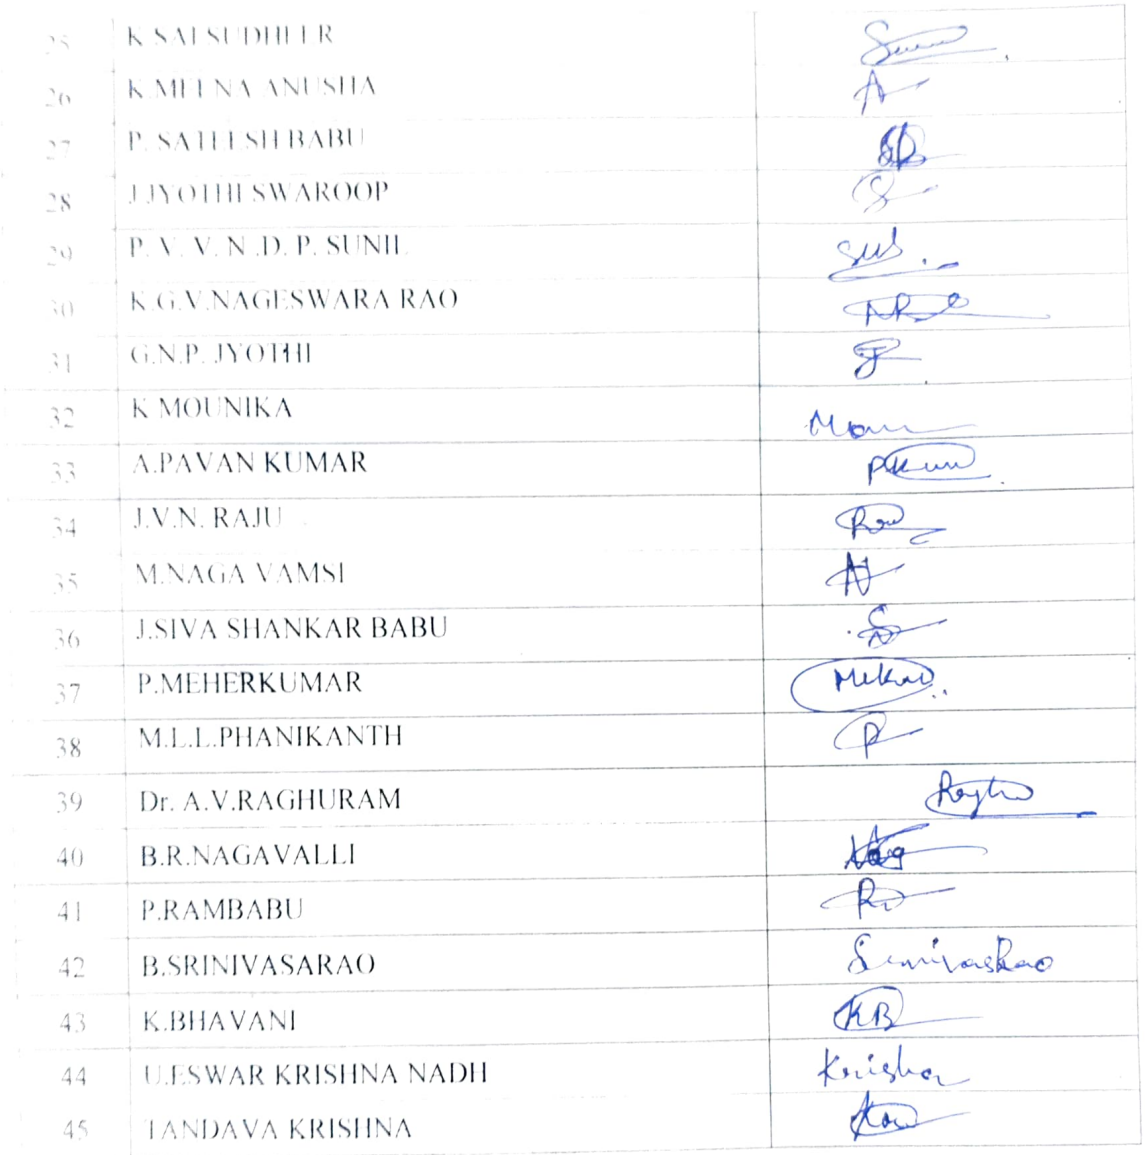 25 K SAI SUDHEER
26 K.MEENA ANUSHA A
27 P. SATEESH BABU
28 J.JYOTHI SWAROOP
29 P. V. V. N .D. P. SUNIL
30 K.G.V.NAGESWARA RAO
31 G.N.P. JYOTHI
32 K MOUNIKA
33 A.PAVAN KUMAR
34 J.V.N. RAJU
35 M.NAGA VAMSI
36 J.SIVA SHANKAR BABU
37 P.MEHERKUMAR
38 M.L.L.PHANIKANTH
39 Dr. A.V.RAGHURAM
40 B.R.NAGAVALLI
41 P.RAMBABU
42 B.SRINIVASARAO SrinivasRao
43 K.BHAVANI KB
44 U.ESWAR KRISHNA NADH Krishna
45 TANDAVA KRISHNA